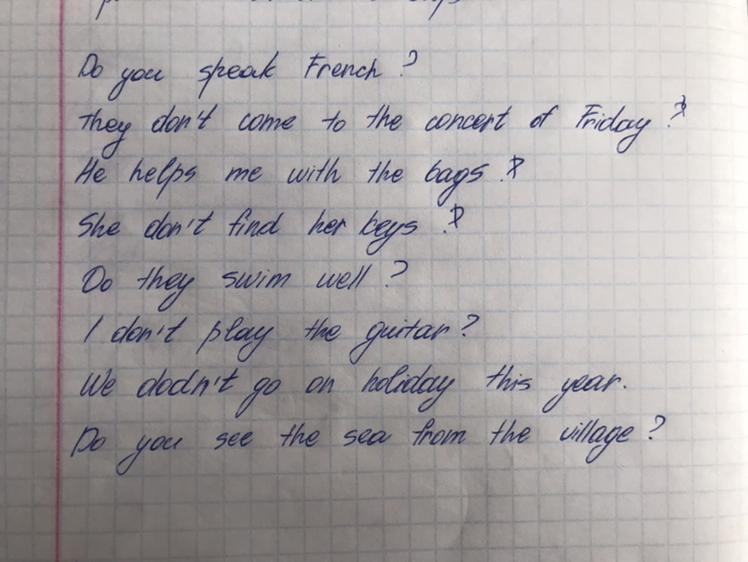 Do you speak French ?
They don't come to the concert of Friday ?
He helps me with the bags .
She don't find her keys .
Do they swim well ?
I don't play the guitar ?
We dodn't go on holiday this year.
Do you see the sea from the village ?